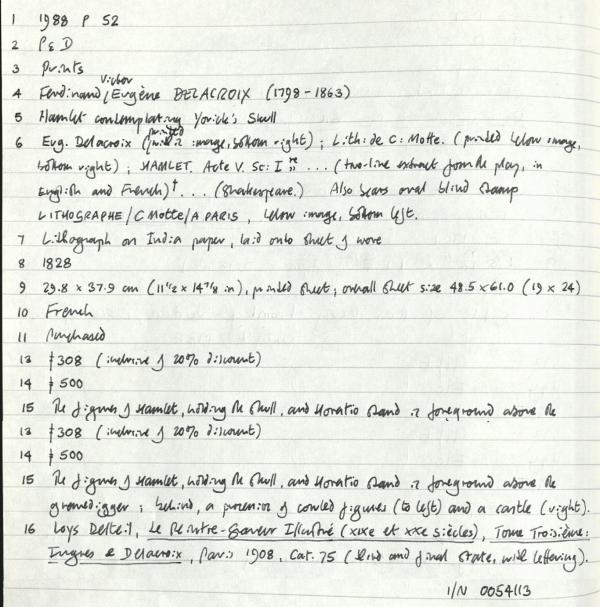 1 1988 P 52
2 P & D
3 Prints
Victor
4 Ferdinand / Eugène DELACROIX (1798-1863)
5 Hamlet contemplating Yorick's Skull
printed
6 Eug. Delacroix (in image, bottom right) ; Lith: de C: Motte. (printed below image,
bottom right) ; HAMLET. Acte V. Sc: I re ,, ... (two-line extract from the play, in
English and French)† ... (Shakespeare.) Also bears oval blind stamp
LITHOGRAPHE / C MOTTE / A PARIS , below image, bottom left.
7 Lithograph on India paper, laid onto sheet of wove
8 1828
9 29.8 x 37.9 cm (11 1/2 x 14 7/8 in), printed sheet; overall sheet size 48.5 x 61.0 (19 x 24)
10 French
11 Purchased
13 $308 (inclusive of 20% discount)
14 $500
15 The figures of Hamlet, holding the skull, and Horatio stand in foreground above the
13 $308 (inclusive of 20% discount)
14 $500
15 The figures of Hamlet, holding the skull, and Horatio stand in foreground above the
gravedigger ; behind, a procession of cowled figures (to left) and a castle (right).
16 Loys Delteil, Le Peintre-Graveur Illustré (XIXe et XXe siècles), Tome Troisième:
Ingres & Delacroix, Paris 1908, Cat. 75 (third and final state, with lettering).
I/N 0054113